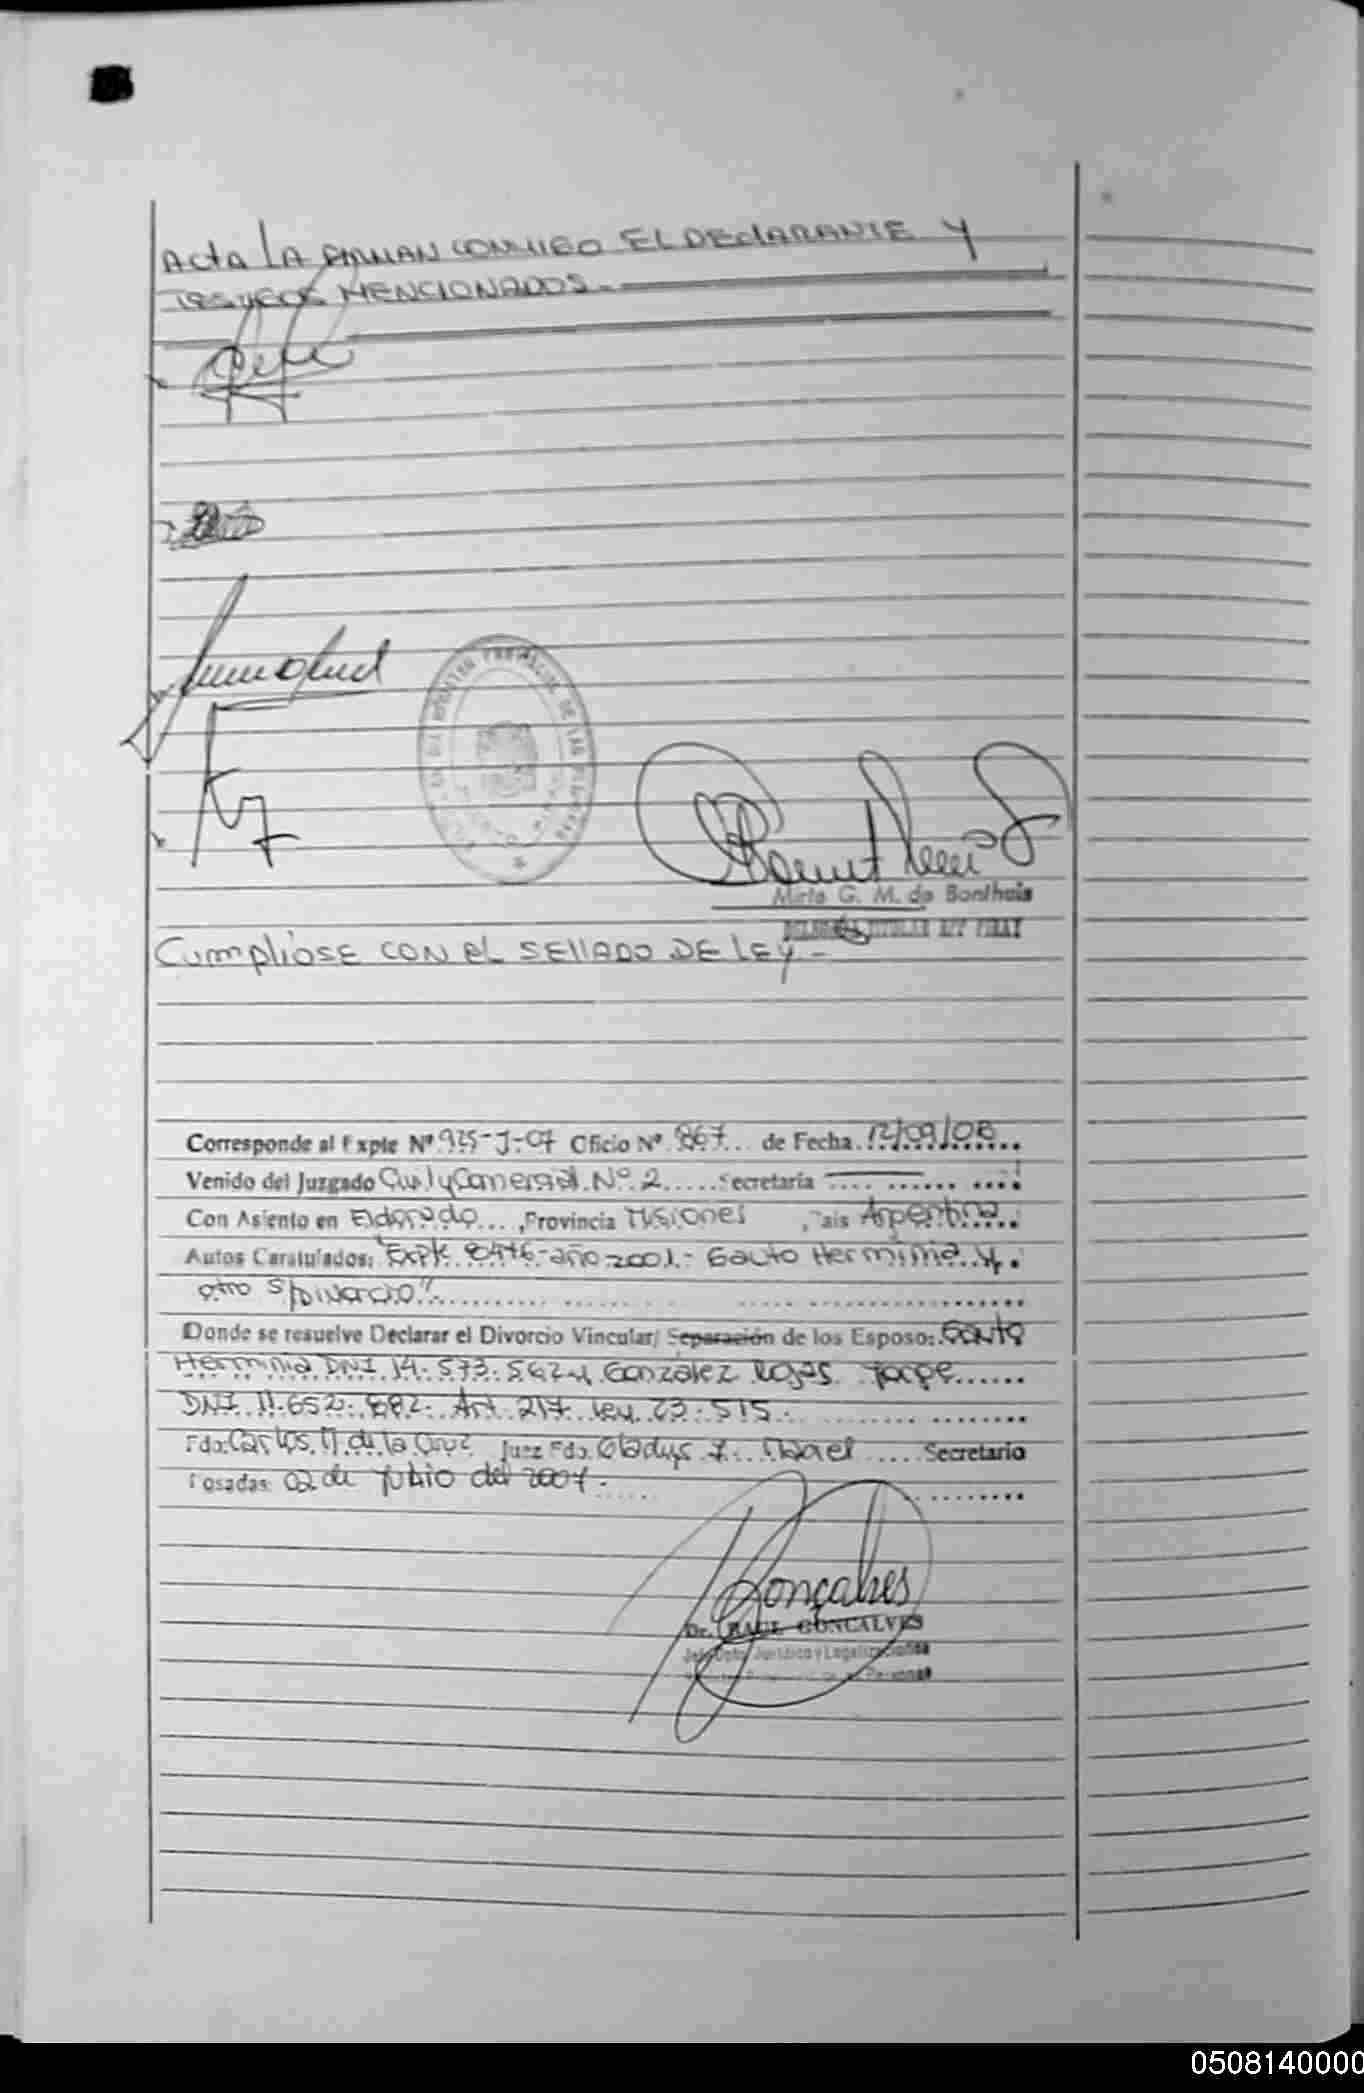 Acta LA FIRMAN CONMIGO EL DECLARANTE Y
TESTIGOS MENCIONADOS.-
PROVINCIAL DE LAS PERSONAS
Mirta G. M. de Bonthuis
DELEGADA TITULAR
Cumpliose CON EL SELLADO DE LEY -
Corresponde al Expte Nº 925-J-07 Oficio Nº 867 de Fecha 12/09/08
Venido del Juzgado Civil y Comercial Nº 2 Secretaría
Con Asiento en Eldorado, Provincia Misiones, País Argentina
Autos Caratulados: "Expte 8446-año-2001.- Gauto Herminia y
otro S/Divorcio"
Donde se resuelve Declarar el Divorcio Vincular/ Separación de los Esposos: Gauto
Herminia DNI 14.573.562 y Gonzalez Rojas Jorge
DNI 11.652.682. Art. 217 Ley 23.515.
Fdo: Carlos M. de la Cruz Juez Fdo. Gladys F. Secretario
Posadas: 02 de Julio del 2007.-
Gonçalves
Dr. RAUL GONCALVES
Jefe Dpto. Jurídico y Legalizaciones
0508140000